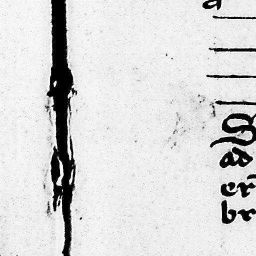 a
S
ad
er
br